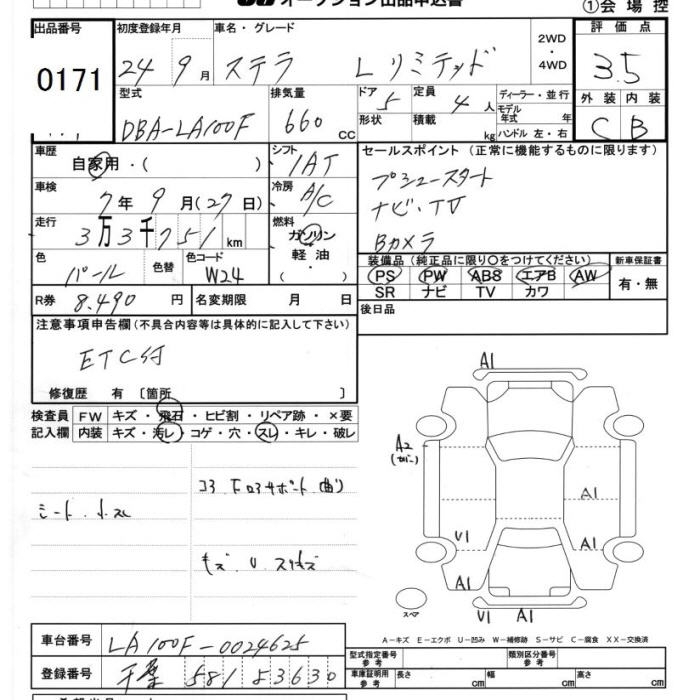 ①会場控
出品番号 初度登録年月 車名・グレード 評価点
0171 24 9月 ステラ Lリミテッド 2WD・4WD 3.5
型式 排気量 ドア 定員 ディーラー・並行 外装 内装
DBA-LA100F 660 CC 5 4人 モデル年式 年 C B
形状 積載 kg ハンドル 左・右
車歴 自家用・( ) シフト 1AT セールスポイント (正常に機能するものに限ります)
車検 7年9月(27日) 冷房 A/C プシュースタート
走行 3万3千751km 燃料 ガソリン・軽油・( ) ナビ・TV
Bカメラ
色 パール 色替 色コード W24 装備品(純正品に限り○をつけてください) 新車保証書
PS PW ABS エアB AW 有・無
SR ナビ TV カワ
R券 8.490円 名変期限 月 日 後日品
注意事項申告欄(不具合内容等は具体的に記入して下さい)
ETC付
修復歴 有 〔箇所 〕
検査員 FW キズ・飛石・ヒビ割・リペア跡・×要
記入欄 内装 キズ・汚レ・コゲ・穴・スレ・キレ・破レ
シート.小スレ
コア下ロアサポート曲り
キズ.U.スリキズ
A1
A2
(カバー)
A1
U1 A1
A1 A1
スペア U1 A1
A−キズ E−エクボ U−凹み W−補修跡 S−サビ C−腐食 XX−交換済
車台番号 LA100F-0024625 型式指定番号 参考 類別区分番号 参考
登録番号 千葉 581 さ3630 車庫証明用 参考 長さ cm 幅 cm 高さ cm